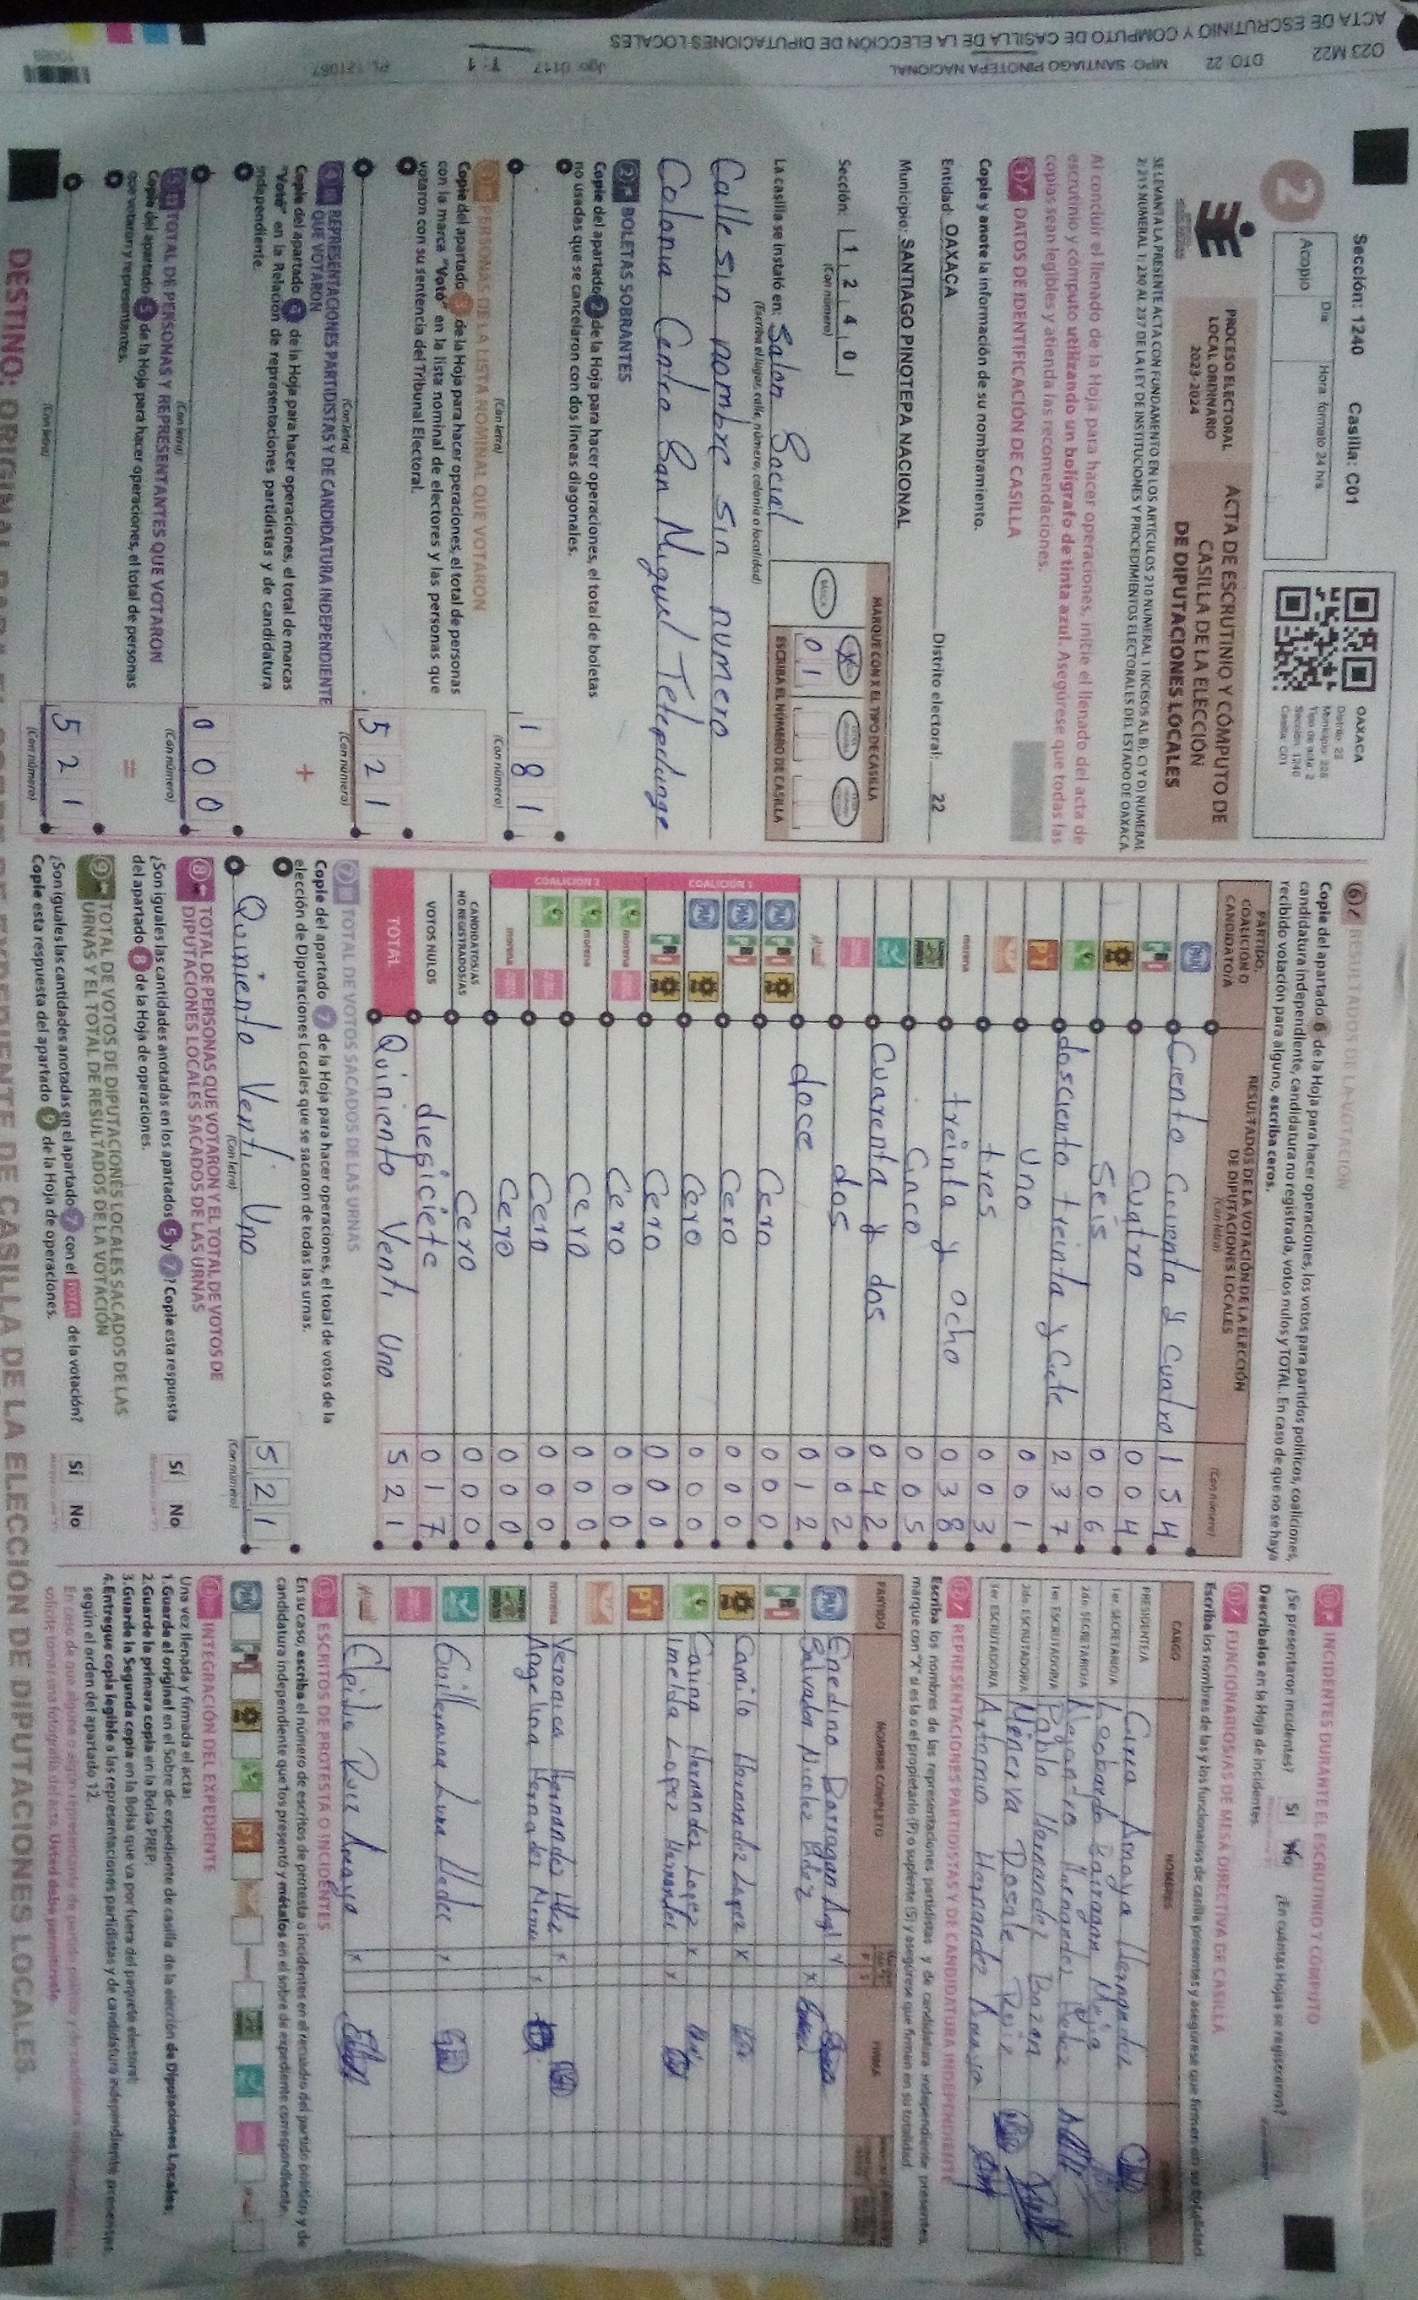 Sección: 1240 Casilla: C01
2
Día Hora formato 24 hrs
Acopio
OAXACA
Distrito: 22
Tipo de acta: 2
Sección: 1240
Casilla: C01
PROCESO ELECTORAL
LOCAL ORDINARIO
2023-2024
ACTA DE ESCRUTINIO Y CÓMPUTO DE
CASILLA DE LA ELECCIÓN
DE DIPUTACIONES LOCALES
SE LEVANTA LA PRESENTE ACTA CON FUNDAMENTO EN LOS ARTÍCULOS 210 NUMERAL 1 INCISOS A), B), C) Y D) NUMERAL
2; 215 NUMERAL 1; 230 AL 237 DE LA LEY DE INSTITUCIONES Y PROCEDIMIENTOS ELECTORALES DEL ESTADO DE OAXACA.
Al concluir el llenado de la Hoja para hacer operaciones, inicie el llenado del acta de
escrutinio y cómputo utilizando un bolígrafo de tinta azul. Asegúrese que todas las
copias sean legibles y atienda las recomendaciones.
1 DATOS DE IDENTIFICACIÓN DE CASILLA
Copie y anote la información de su nombramiento.
Entidad: OAXACA Distrito electoral: 22
Municipio: SANTIAGO PINOTEPA NACIONAL
Sección: 1 2 4 0
(Con número)
MARQUE CON X EL TIPO DE CASILLA
BÁSICA X
ESCRIBA EL NÚMERO DE CASILLA
0 1
La casilla se instaló en: Salon Social
(Escriba el lugar, calle, número, colonia o localidad)
Calle sin nombre sin numero
Colonia Centro San Miguel Tetepelcingo
2 BOLETAS SOBRANTES
Copie del apartado 2 de la Hoja para hacer operaciones, el total de boletas
no usadas que se cancelaron con dos líneas diagonales.
1 8 1
(Con letra) (Con número)
3 PERSONAS DE LA LISTA NOMINAL QUE VOTARON
Copie del apartado 3 de la Hoja para hacer operaciones, el total de personas
con la marca "Votó" en la lista nominal de electores y las personas que
votaron con su sentencia del Tribunal Electoral.
5 2 1
(Con letra) (Con número)
4 REPRESENTACIONES PARTIDISTAS Y DE CANDIDATURA INDEPENDIENTE
QUE VOTARON
Copie del apartado 4 de la Hoja para hacer operaciones, el total de marcas
"Votó" en la Relación de representaciones partidistas y de candidatura
independiente.
+
0 0 0
(Con letra) (Con número)
5 TOTAL DE PERSONAS Y REPRESENTANTES QUE VOTARON
Copie del apartado 5 de la Hoja para hacer operaciones, el total de personas
que votaron y representantes.
=
5 2 1
(Con letra) (Con número)
6 RESULTADOS DE LA VOTACIÓN
Copie del apartado 6 de la Hoja para hacer operaciones, los votos para partidos políticos, coaliciones,
candidatura independiente, candidatura no registrada, votos nulos y TOTAL. En caso de que no se haya
recibido votación para alguno, escriba ceros.
PARTIDO,
COALICIÓN O
CANDIDATO/A
RESULTADOS DE LA VOTACIÓN DE LA ELECCIÓN
DE DIPUTACIONES LOCALES
(Con letra) (Con número)
PAN Ciento Cicuenta y cuatro 1 5 4
PRI cuatro 0 0 4
PRD Seis 0 0 6
VERDE dosciento treinta y Ciete 2 3 7
PT Uno 0 0 1
tres 0 0 3
morena treinta y ocho 0 3 8
Cinco 0 0 5
Cuarenta y dos 0 4 2
dos 0 0 2
doce 0 1 2
COALICIÓN 1
PAN PRI PRD Cero 0 0 0
PAN PRI Cero 0 0 0
PAN PRD Cero 0 0 0
PRI PRD Cero 0 0 0
COALICIÓN 2
morena Cero 0 0 0
morena Cero 0 0 0
Cero 0 0 0
morena Cero 0 0 0
CANDIDATOS/AS
NO REGISTRADOS/AS Cero 0 0 0
VOTOS NULOS diesiciete 0 1 7
TOTAL Quiniento Venti Uno 5 2 1
7 TOTAL DE VOTOS SACADOS DE LAS URNAS
Copie del apartado 7 de la Hoja para hacer operaciones, el total de votos de la
elección de Diputaciones Locales que se sacaron de todas las urnas.
Quiniento Venti Uno 5 2 1
(Con letra) (Con número)
8 TOTAL DE PERSONAS QUE VOTARON Y EL TOTAL DE VOTOS DE
DIPUTACIONES LOCALES SACADOS DE LAS URNAS
¿Son iguales las cantidades anotadas en los apartados 5 y 7? Copie esta respuesta
del apartado 8 de la Hoja de operaciones.
Sí No
9 TOTAL DE VOTOS DE DIPUTACIONES LOCALES SACADOS DE LAS
URNAS Y EL TOTAL DE RESULTADOS DE LA VOTACIÓN
¿Son iguales las cantidades anotadas en el apartado 7 con el TOTAL de la votación?
Copie esta respuesta del apartado 9 de la Hoja de operaciones.
Sí No
10 INCIDENTES DURANTE EL ESCRUTINIO Y CÓMPUTO
¿Se presentaron incidentes? Sí No ¿En cuántas Hojas se registraron?
Descríbalos en la Hoja de incidentes.
11 FUNCIONARIOS/AS DE MESA DIRECTIVA DE CASILLA
Escriba los nombres de las y los funcionarios de casilla presentes y asegúrese que firmen en su totalidad
CARGO NOMBRES
PRESIDENTE/A Ciria Amaya Hernandez
1er. SECRETARIO/A Leobardo Barragan Mejia
2do. SECRETARIO/A Alejandro Hernandez
1er. ESCRUTADOR/A Pablo Hernandez Bazan
2do. ESCRUTADOR/A Minerva Dosale Ruiz
3er. ESCRUTADOR/A Antonio Hernandez Amaya
12 REPRESENTACIONES PARTIDISTAS Y DE CANDIDATURA INDEPENDIENTE
Escriba los nombres de las representaciones partidistas y de candidatura independiente presentes,
marque con "X" si es la o el propietario (P) o suplente (S) y asegúrese que firmen en su totalidad.
PARTIDO NOMBRE COMPLETO FIRMA
PAN Enedina Barragan
Salvador Nicolaz
PRI
PRD Camilo Hernandez Lopez X
VERDE Carina Hernandez Lopez X
Imelda Lopez Hernandez X
PT
morena Veronica Hernandez X
Angelina Hernandez X
Guillermina Luna X
Elpidio Ruiz Amaya X
13 ESCRITOS DE PROTESTA O INCIDENTES
En su caso, escriba el número de escritos de protesta o incidentes en el recuadro del partido político y de
candidatura independiente que los presentó y métalos en el sobre de expediente correspondiente.
INTEGRACIÓN DEL EXPEDIENTE
Una vez llenada y firmada el acta:
1. Guarde el original en el Sobre de expediente de casilla de la elección de Diputaciones Locales;
2. Guarde la primera copia en la Bolsa PREP;
3. Guarde la Segunda copia en la Bolsa que va por fuera del paquete electoral;
4. Entregue copia legible a las representaciones partidistas y de candidatura independiente presentes,
según el orden del apartado 12.
DESTINO: ORIGINAL PARA EL SOBRE DE EXPEDIENTE DE CASILLA DE LA ELECCIÓN DE DIPUTACIONES LOCALES.
O23 M22 DTO: 22 MPO: SANTIAGO PINOTEPA NACIONAL Jgo: 0117 T: 1 PL: 121067
ACTA DE ESCRUTINIO Y CÓMPUTO DE CASILLA DE LA ELECCIÓN DE DIPUTACIONES LOCALES